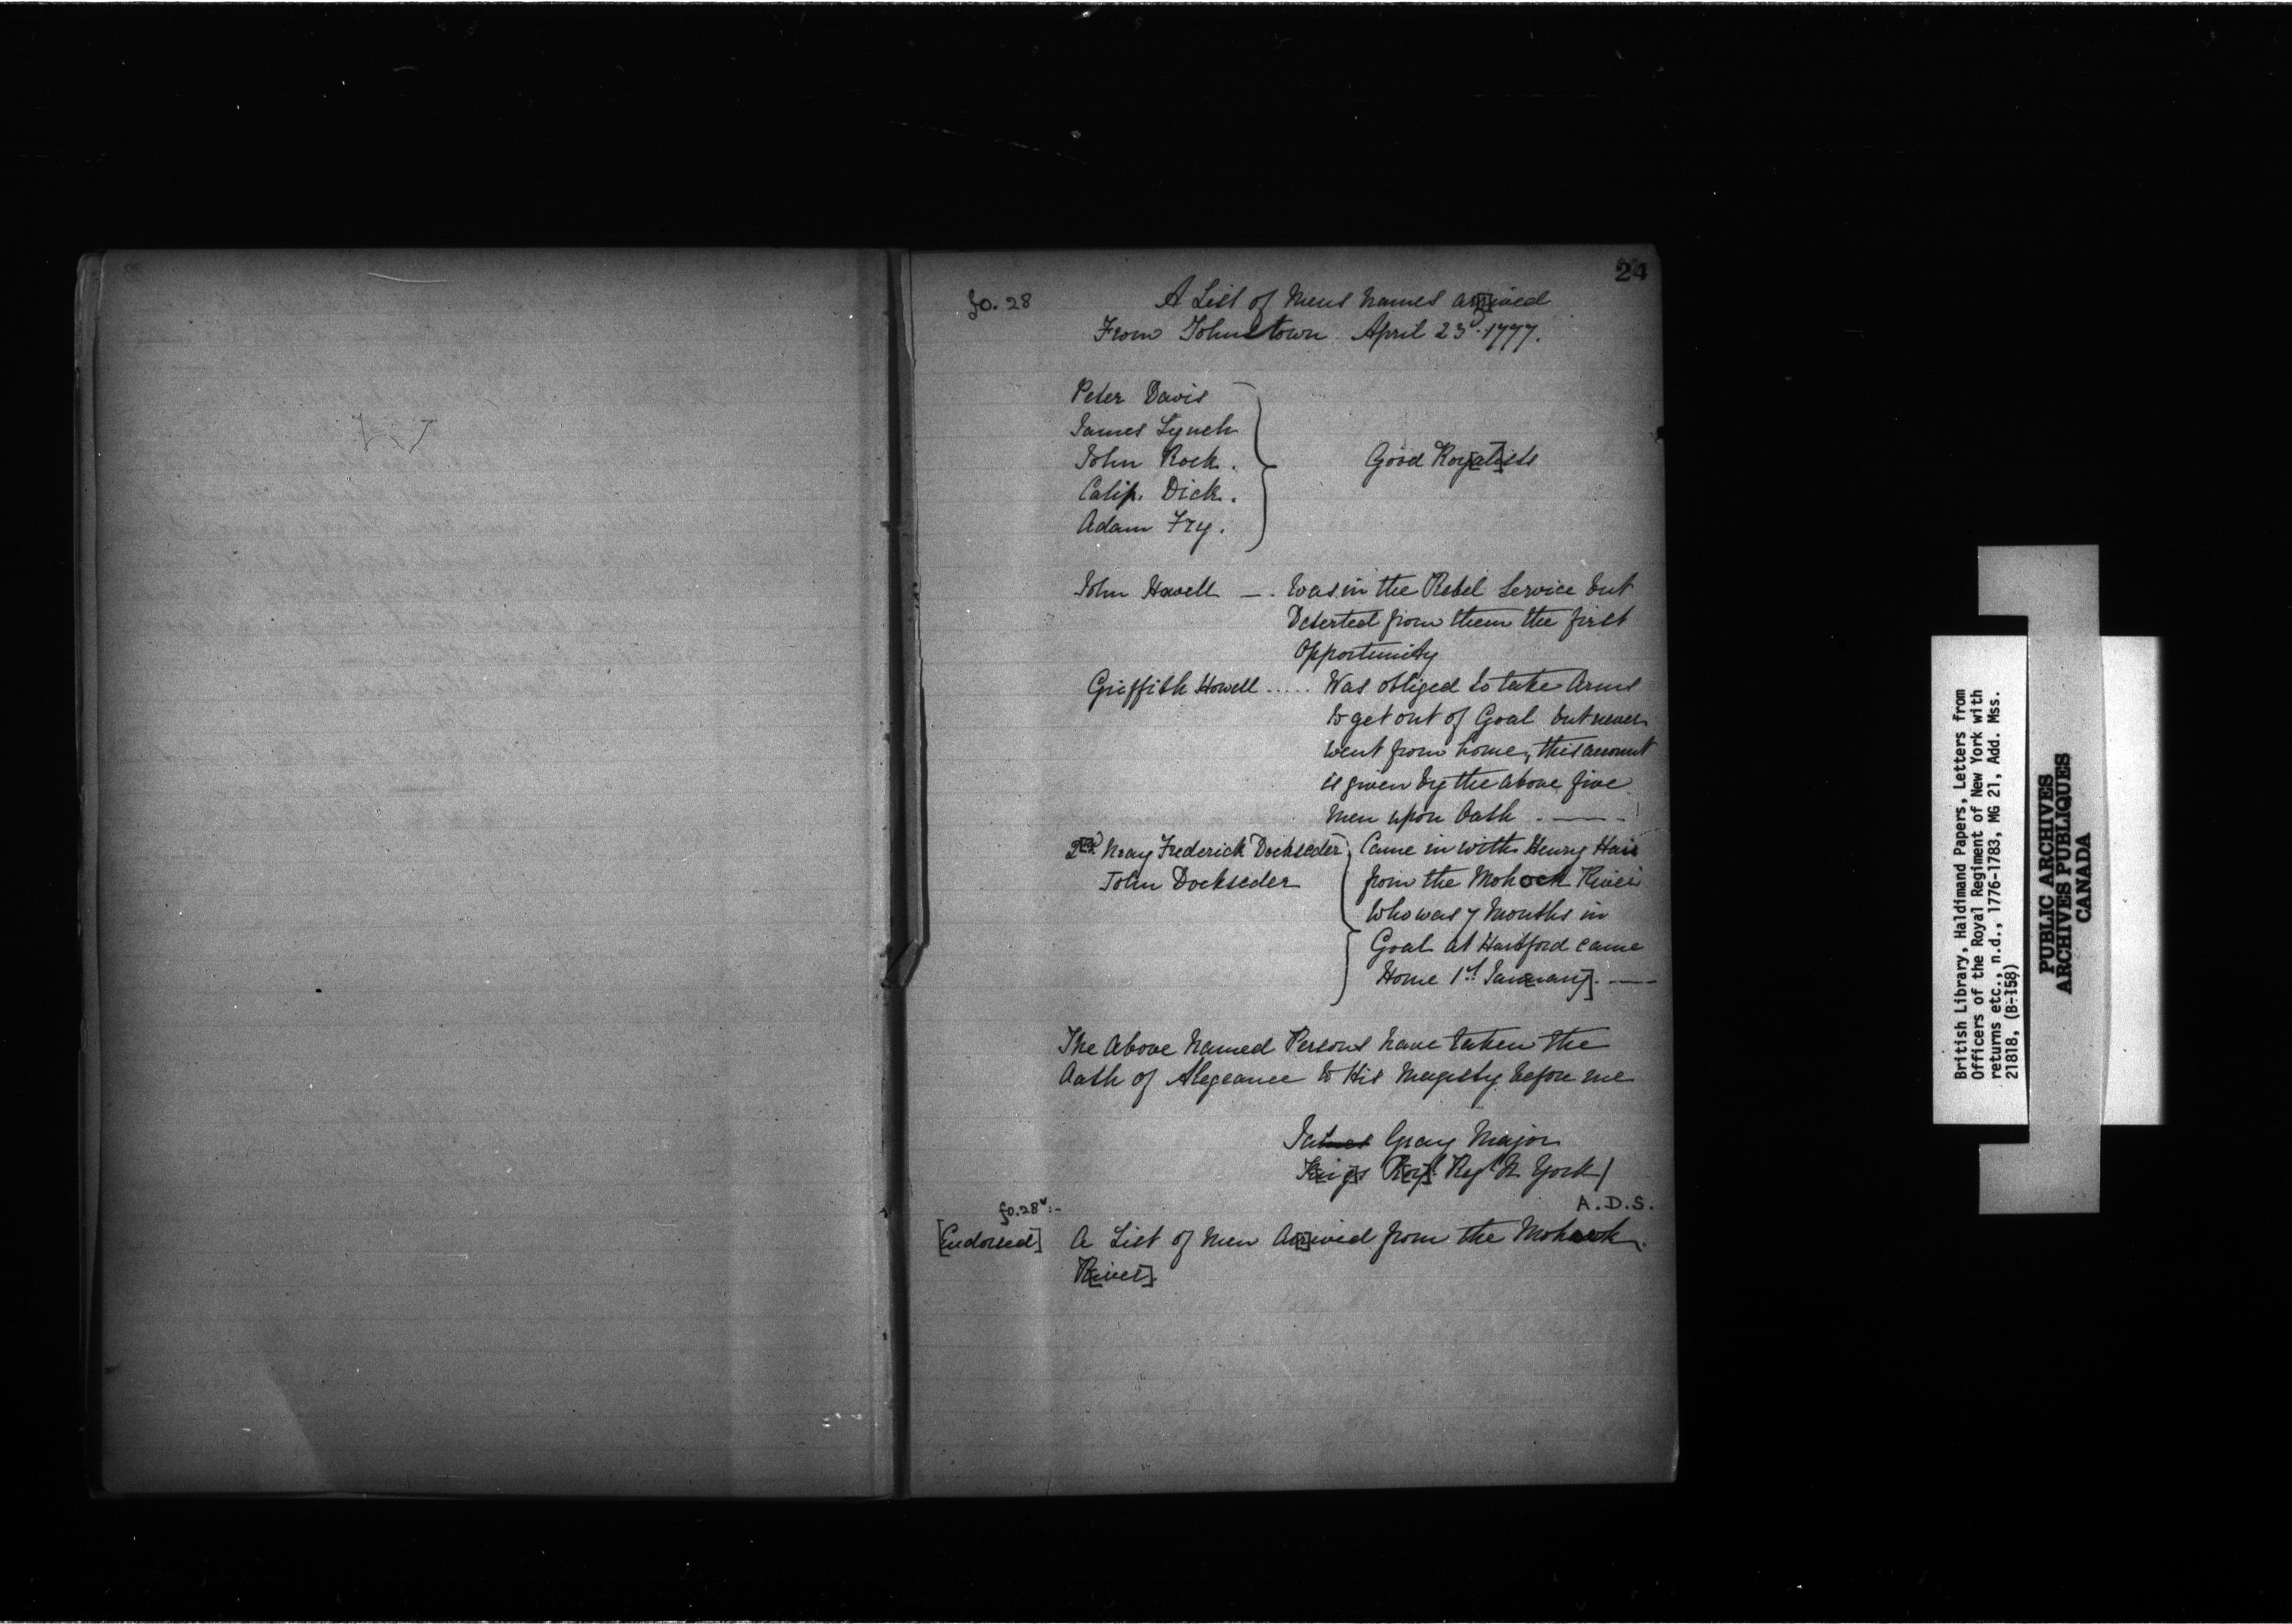 24
fo. 28
A List of Mens Names ar[r]ived
From Johnstown April 23d. 1777.
Peter Davis
James Lynch
John Rock.
Calip. Dick.
Adam Fry.
Good Roy[al]ists
John Howell —. Was in the Rebel Service but
Deserted from them the first
Opportunity
Griffith Howell ..... Was obliged to take Arms
to get out of Goal but never
went from home, this account
is given by the above five
Men upon Oath . — .
2[d] May Frederick Dockseder
John Dockseder
Came in with Henry Hair
from the Mohock River
Who was 7 Months in
Goal at Hartford came
Home 1st January]. —
The Above Named Persons have taken the
Oath of Alegeance to His Magesty before me
James Gray Major
K[ing]s R[oy]l. Regt N York /
A.D.S.
fo. 28v:-
[Endorsed] A List of Men Ar[r]ived from the Mohawk
R[iver].
British Library, Haldimand Papers, Letters from
Officers of the Royal Regiment of New York with
returns etc., n.d., 1776-1783, MG 21, Add. Mss.
21818, (B-158)
PUBLIC ARCHIVES
ARCHIVES PUBLIQUES
CANADA